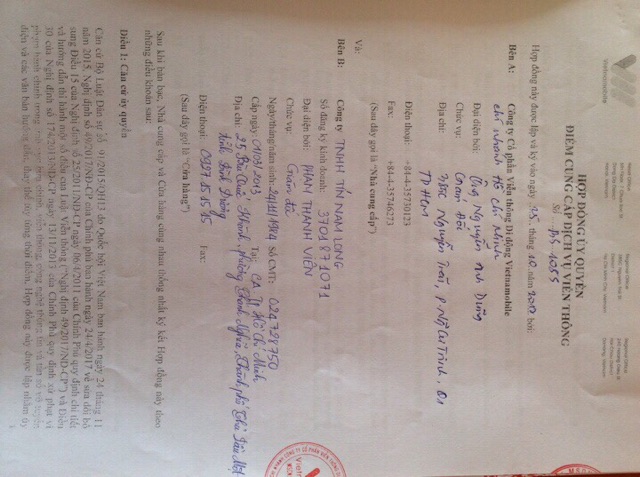 Vietnamobile
HỢP ĐỒNG ỦY QUYỀN
ĐIỂM CUNG CẤP DỊCH VỤ VIỄN THÔNG
Số
Hợp đồng này được lập và ký vào ngày 25 tháng 10 năm 2017 bởi:
Bên A: Công ty Cổ phần Viễn thông Di động Vietnamobile
chi nhánh Hồ Chí Minh
Đại diện bởi: Ông Nguyễn Anh Dũng
Chức vụ: Giám Đốc
Địa chỉ: Nguyễn Trãi, P Nguyễn Cư Trinh, Q1
TP HCM
Điện thoại: +84-4-35730123
Fax: +84-4-35746273
(Sau đây gọi là "Nhà cung cấp")
Và:
Bên B: Công ty TNHH TÍN NAM LONG
Số đăng ký kinh doanh: 3701871071
Đại diện bởi: PHAN THANH VIÊN
Chức vụ: Giám đốc
Ngày/tháng/năm sinh: 24/11/1984 Số CMT: 024728750
Cấp ngày: 2013 Tại: CA TP Hồ Chí Minh
Địa chỉ: 25 Bàu phường Chánh Nghĩa, Thành phố Thủ Dầu Một
tỉnh Bình Dương
Điện thoại: 0927.15.15.15 Fax:
(Sau đây gọi là "Cửa hàng")
Sau khi bàn bạc, Nhà cung cấp và Cửa hàng cùng nhau thống nhất ký kết Hợp đồng này theo
những điều khoản sau:
Điều 1: Căn cứ ủy quyền
Căn cứ Bộ Luật Dân sự Số 91/2015/QH13 do Quốc hội Việt Nam ban hành ngày 24 tháng 11
năm 2015, Nghị định số 49/2017/NĐ-CP của Chính phủ ban hành ngày 24/4/2017 về sửa đổi bổ
sung Điều 15 của Nghị định số 25/2011/NĐ-CP ngày 06/4/2011 của Chính Phủ quy định chi tiết
và hướng dẫn thi hành một số điều của Luật Viễn thông ("Nghị định 49/2017/NĐ-CP") và Điều
30 của Nghị định số 174/2013/NĐ-CP ngày 13/11/2013 của Chính Phủ quy định xử phạt vi
phạm hành chính trong lĩnh vực bưu chính, viễn thông, công nghệ thông tin và tần số vô tuyến
điện và các văn bản thay thế tùy từng thời điểm. Hợp đồng này được lập nhằm ủy